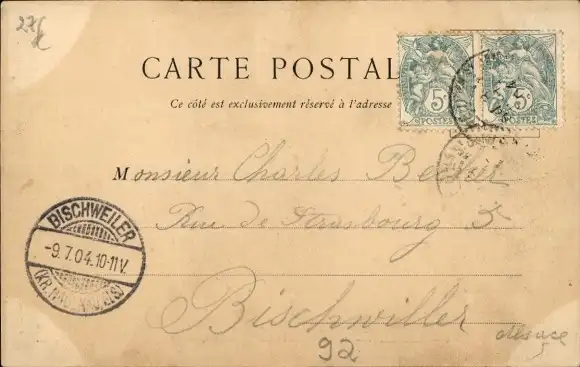 27
CARTE POSTAL
Ce côté est exclusivement réservé à l'adresse
5c POSTES
5c POSTES
Monsieur Charles
Rue de Strasbourg 5
BISCHWEILER
-9.7.04.10-11V.
Bischwiller
Alsace
92